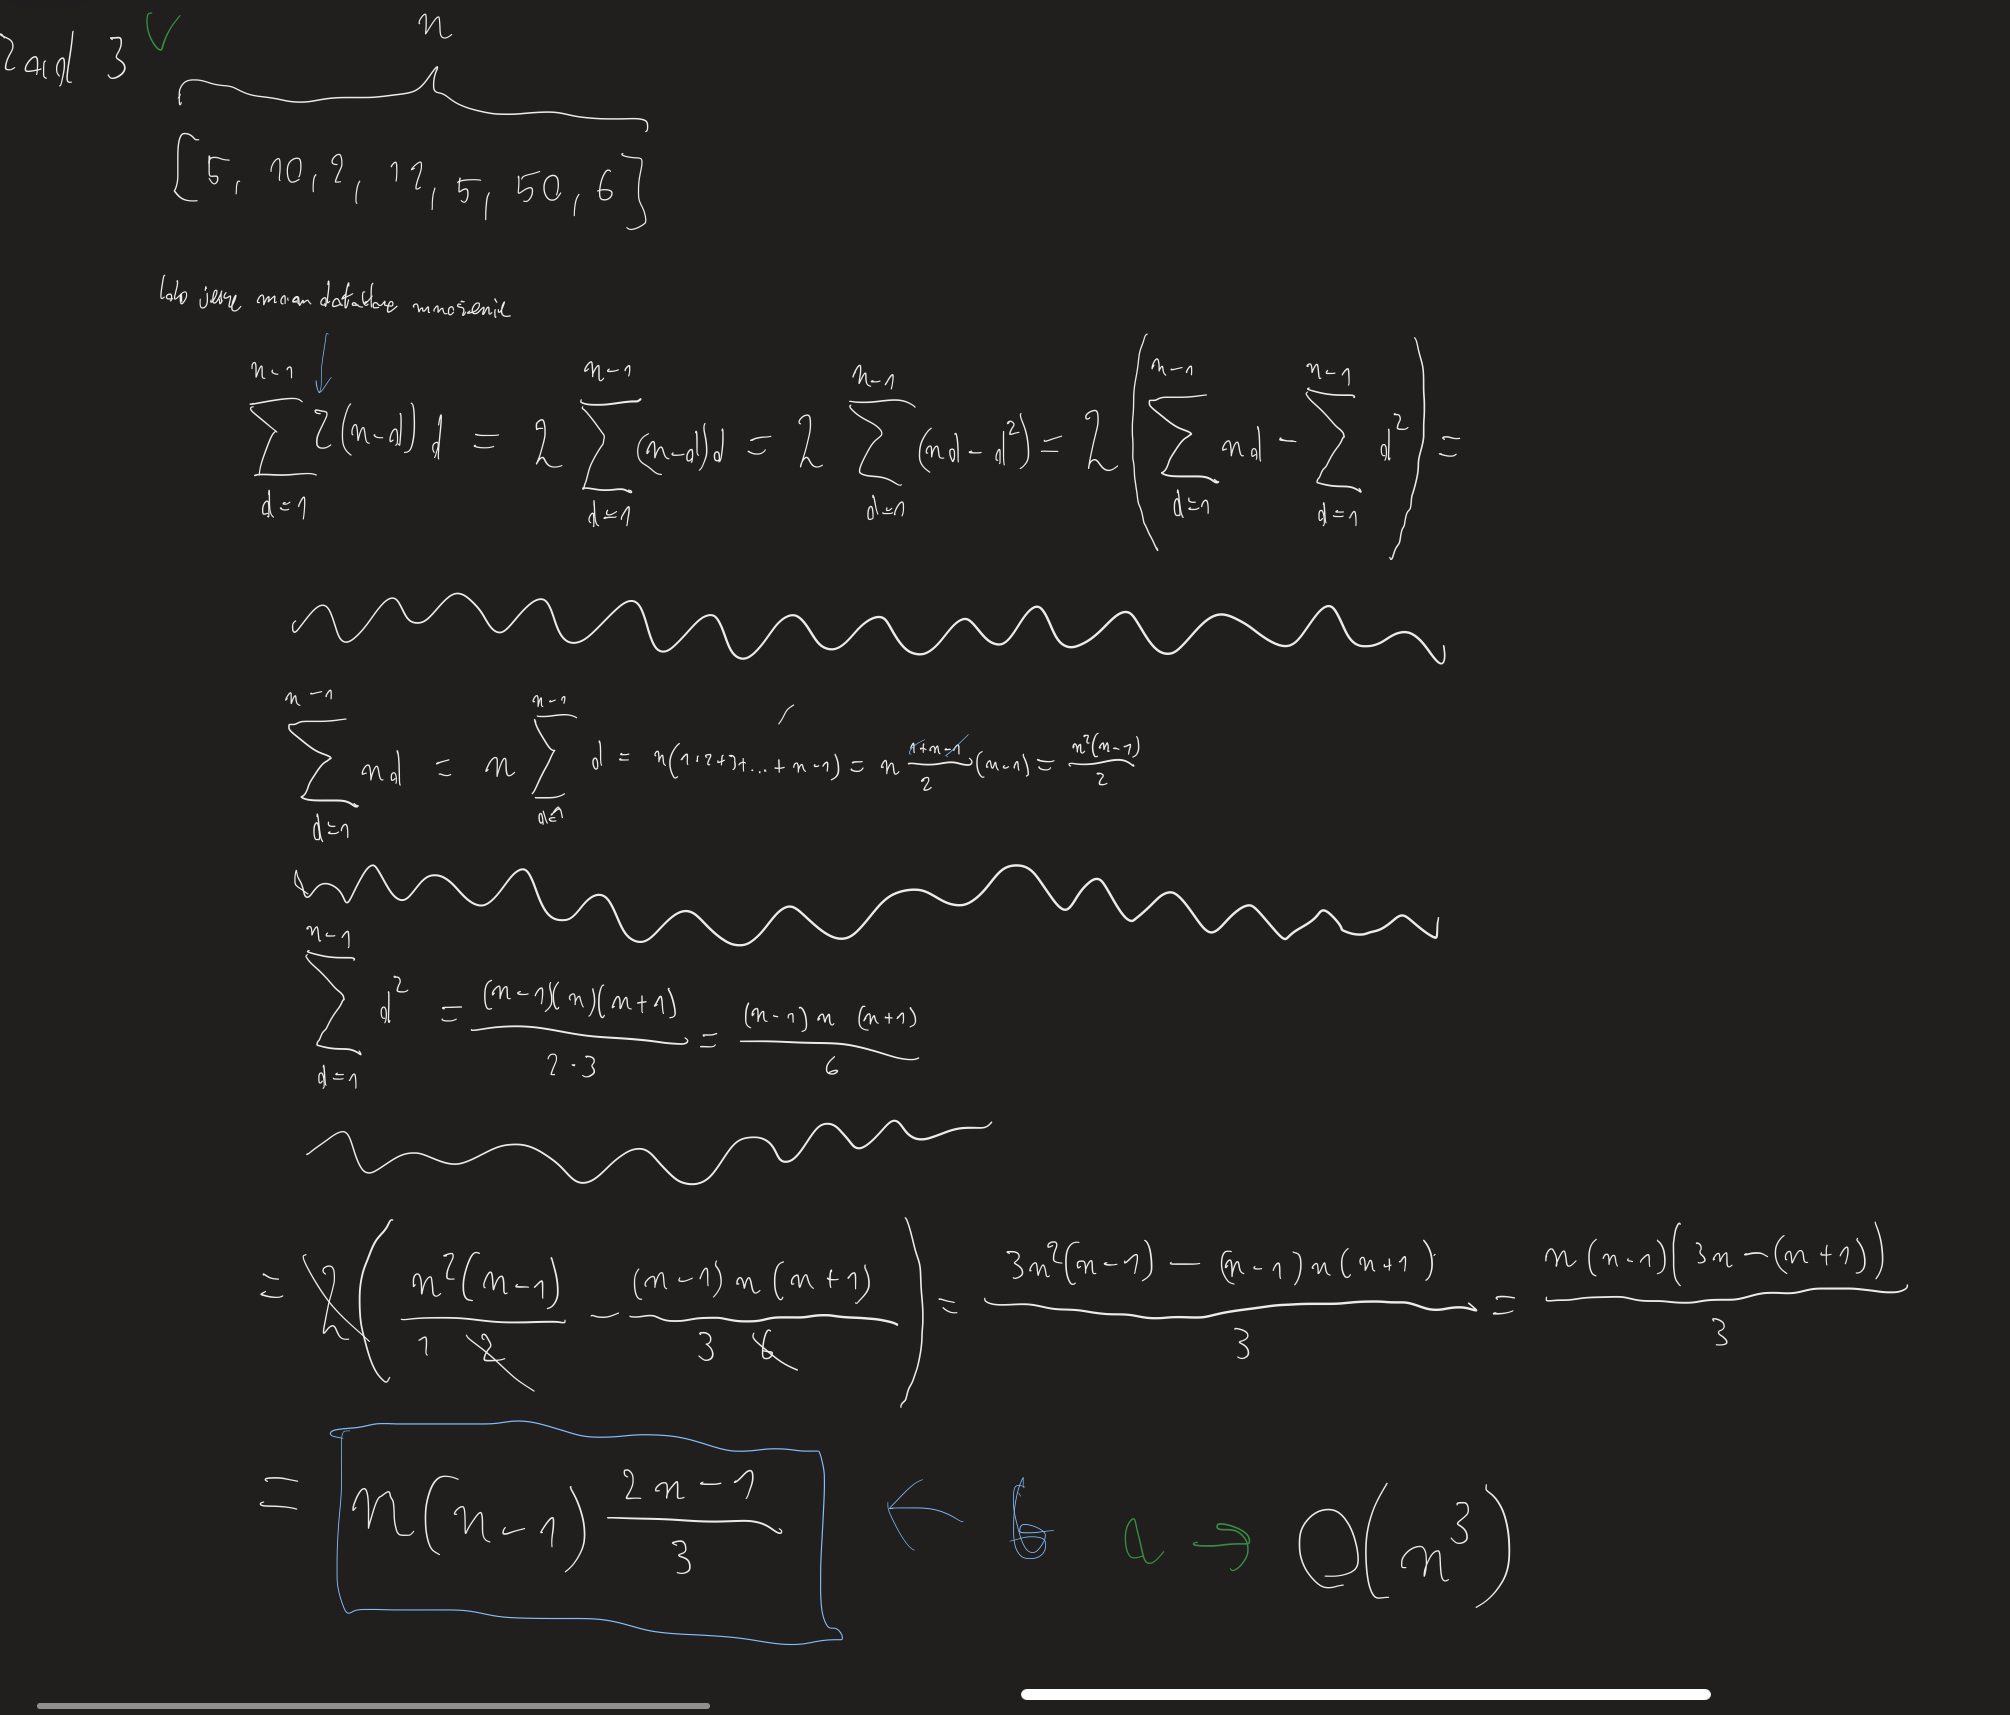 Zad 3
n
[5, 10, 2, 12, 5, 50, 6]
mam dodatkowe mnożenie
\sum_{d=1}^{n-1} 2(n-d)d = 2 \sum_{d=1}^{n-1} (n-d)d = 2 \sum_{d=1}^{n-1} (nd-d^2) = 2 \left( \sum_{d=1}^{n-1} nd - \sum_{d=1}^{n-1} d^2 \right) =
\sum_{d=1}^{n-1} nd = n \sum_{d=1}^{n-1} d = n(1+2+3+...+n-1) = n \frac{1+n-1}{2} (n-1) = \frac{n^2(n-1)}{2}
\sum_{d=1}^{n-1} d^2 = \frac{(n-1)(n)(n+1)}{2 \cdot 3} = \frac{(n-1) n (n+1)}{6}
= 2 \left( \frac{n^2(n-1)}{1 2} - \frac{(n-1) n (n+1)}{3 6} \right) = \frac{3n^2(n-1) - (n-1) n (n+1)}{3} = \frac{n(n-1)(3n-(n+1))}{3}
= n(n-1) \frac{2n-1}{3} ← b a → O(n^3)